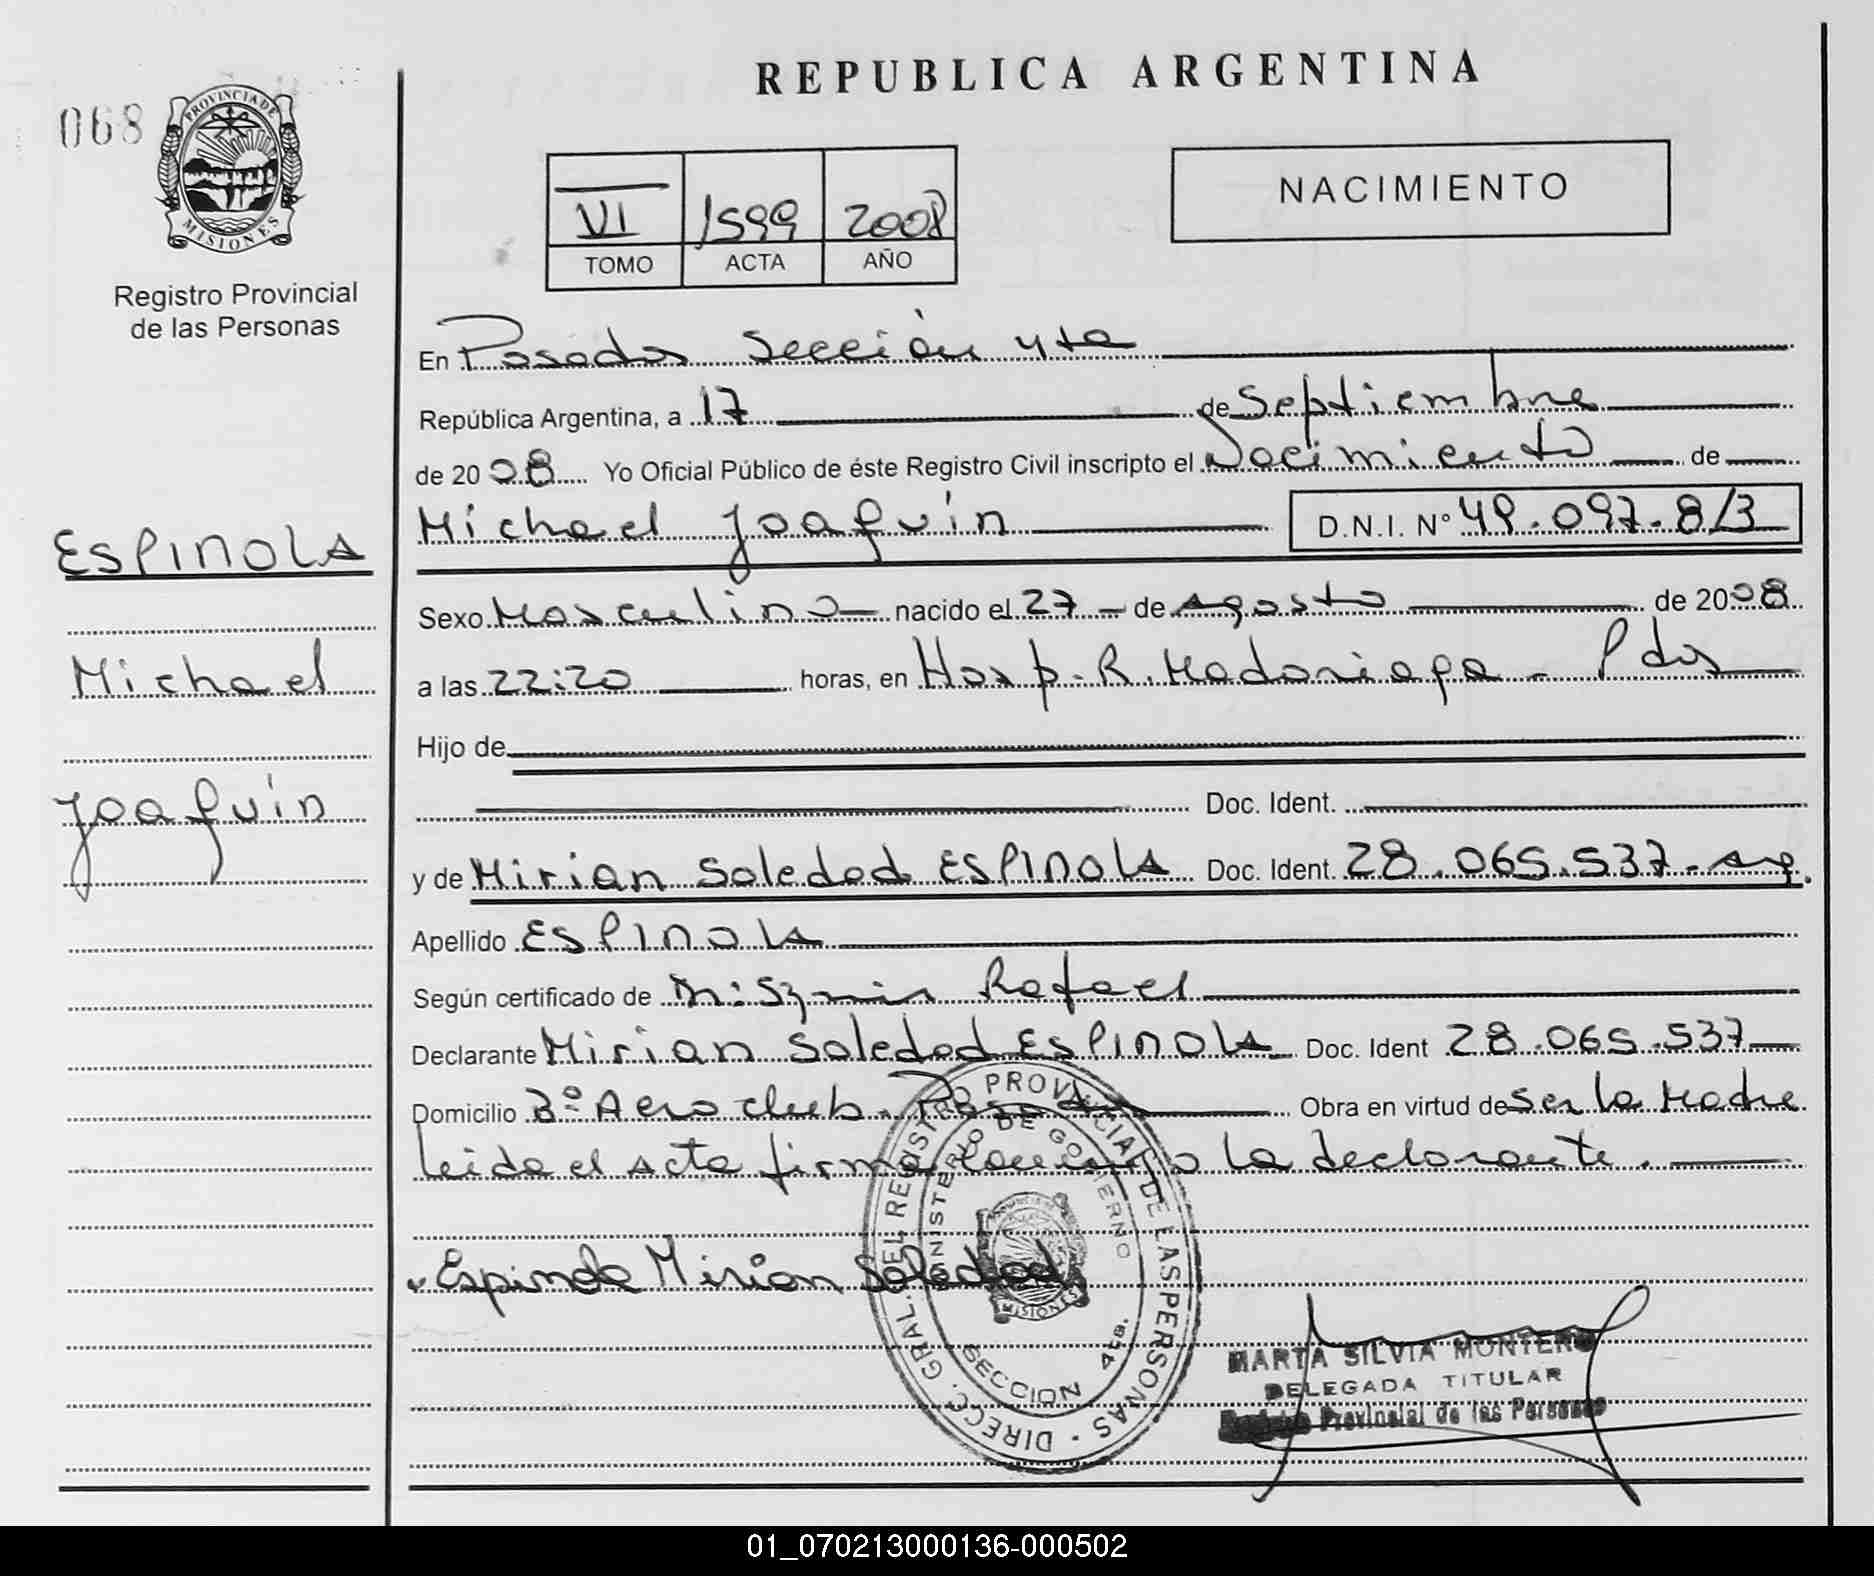 REPUBLICA ARGENTINA
068
PROVINCIA DE
MISIONES
Registro Provincial
de las Personas
NACIMIENTO
VI 1599 2008
TOMO ACTA AÑO
En Posadas Sección 4ta
República Argentina, a 17 de Septiembre
de 2008 Yo Oficial Público de éste Registro Civil inscripto el Nacimiento de
Michael Joaquín D.N.I. Nº 49.097.813
ESPINOLA
Michael
Joaquín
Sexo Masculino nacido el 27 de Agosto de 2008
a las 22:20 horas, en Hosp. R. Madariaga - Pdas
Hijo de
Doc. Ident.
y de Mirian Soledad ESPINOLA Doc. Ident. 28.065.537 - Arg.
Apellido ESPINOLA
Según certificado de Rafael
Declarante Mirian Soledad ESPINOLA Doc. Ident 28.065.537
Domicilio Bº Aero club. Posadas Obra en virtud de Ser la Madre
leida el Acta firma conmigo la declarante.
Espinola Mirian Soledad
DIRECC. GRAL. DEL REGISTRO PROVINCIAL DE LAS PERSONAS
MINISTERIO DE GOBIERNO
MISIONES
SECCION 4ta.
MARTA SILVIA MONTERO
DELEGADA TITULAR
Registro Provincial de las Personas
01_070213000136-000502